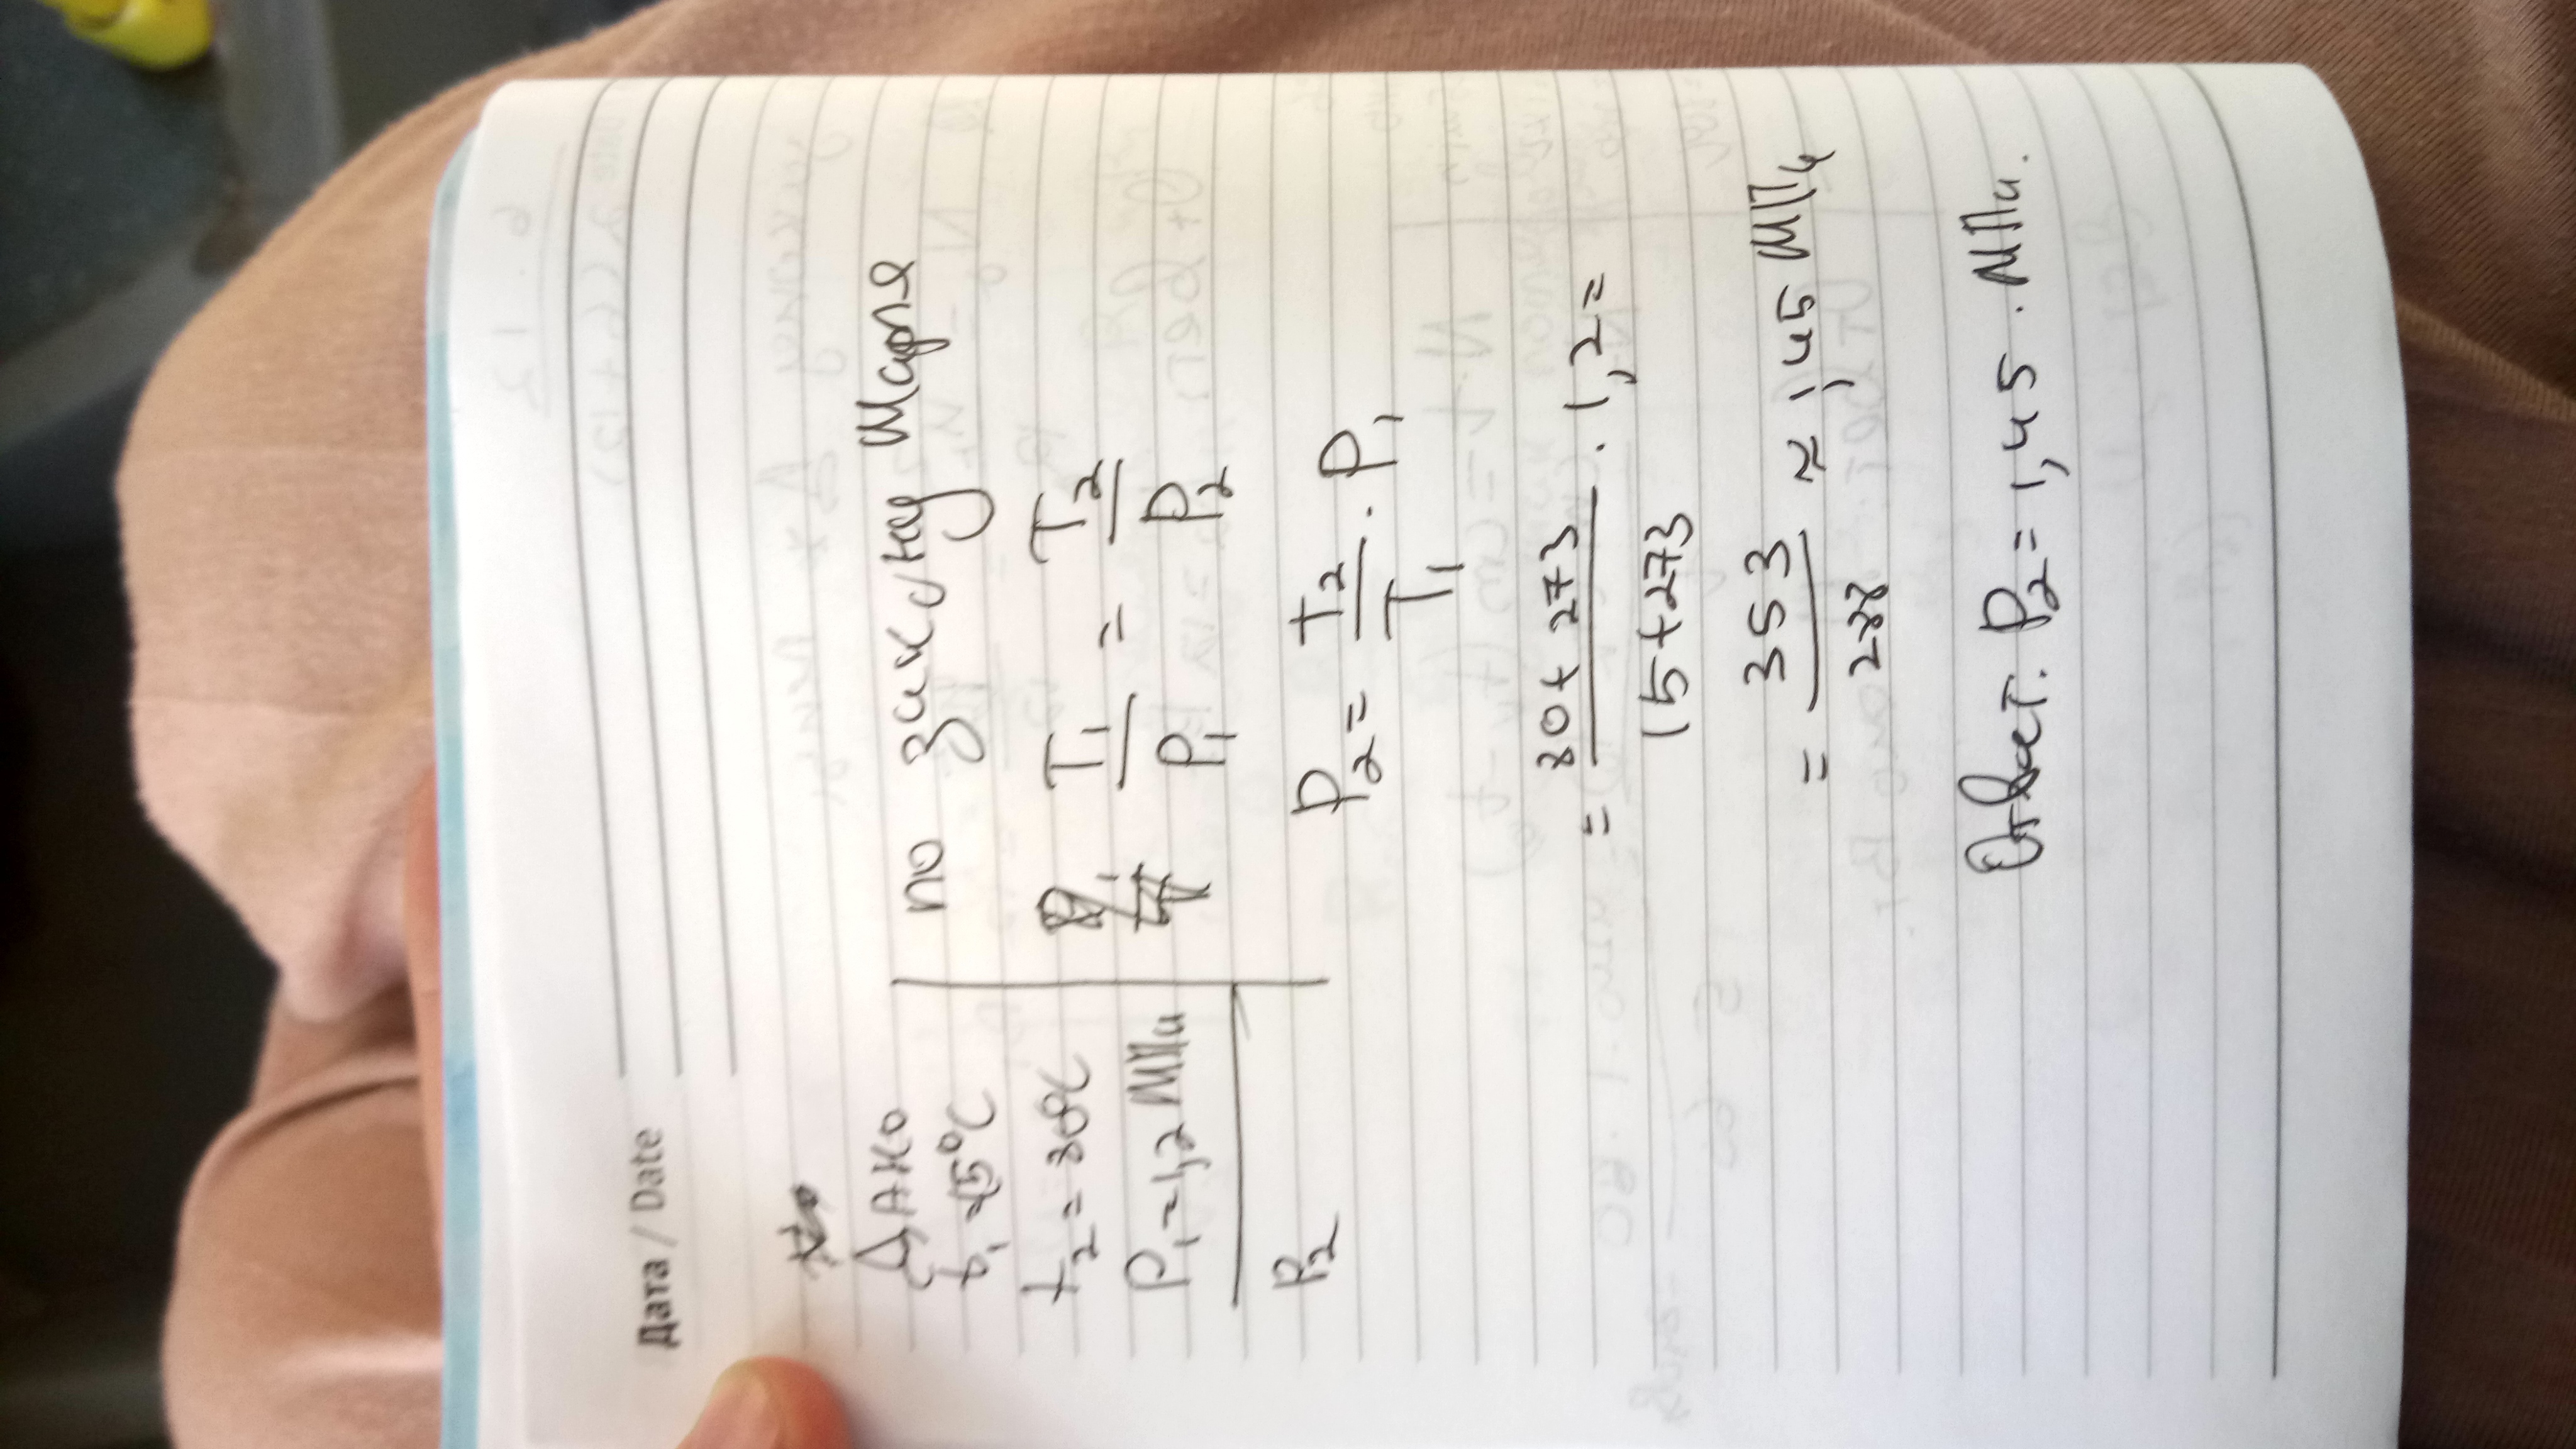 Дата / Date
Дано
t₁ = 15°C
t₂ = 80°C
P₁ = 1,2 МПа
P₂
по закону Шарля
T₁/P₁ = T₂/P₂
P₂ = T₂/T₁ · P₁
= 80 + 273 / 15 + 273 · 1,2 =
= 353/288 ≈ 1,45 МПа
Ответ: P₂ = 1,45 · МПа.